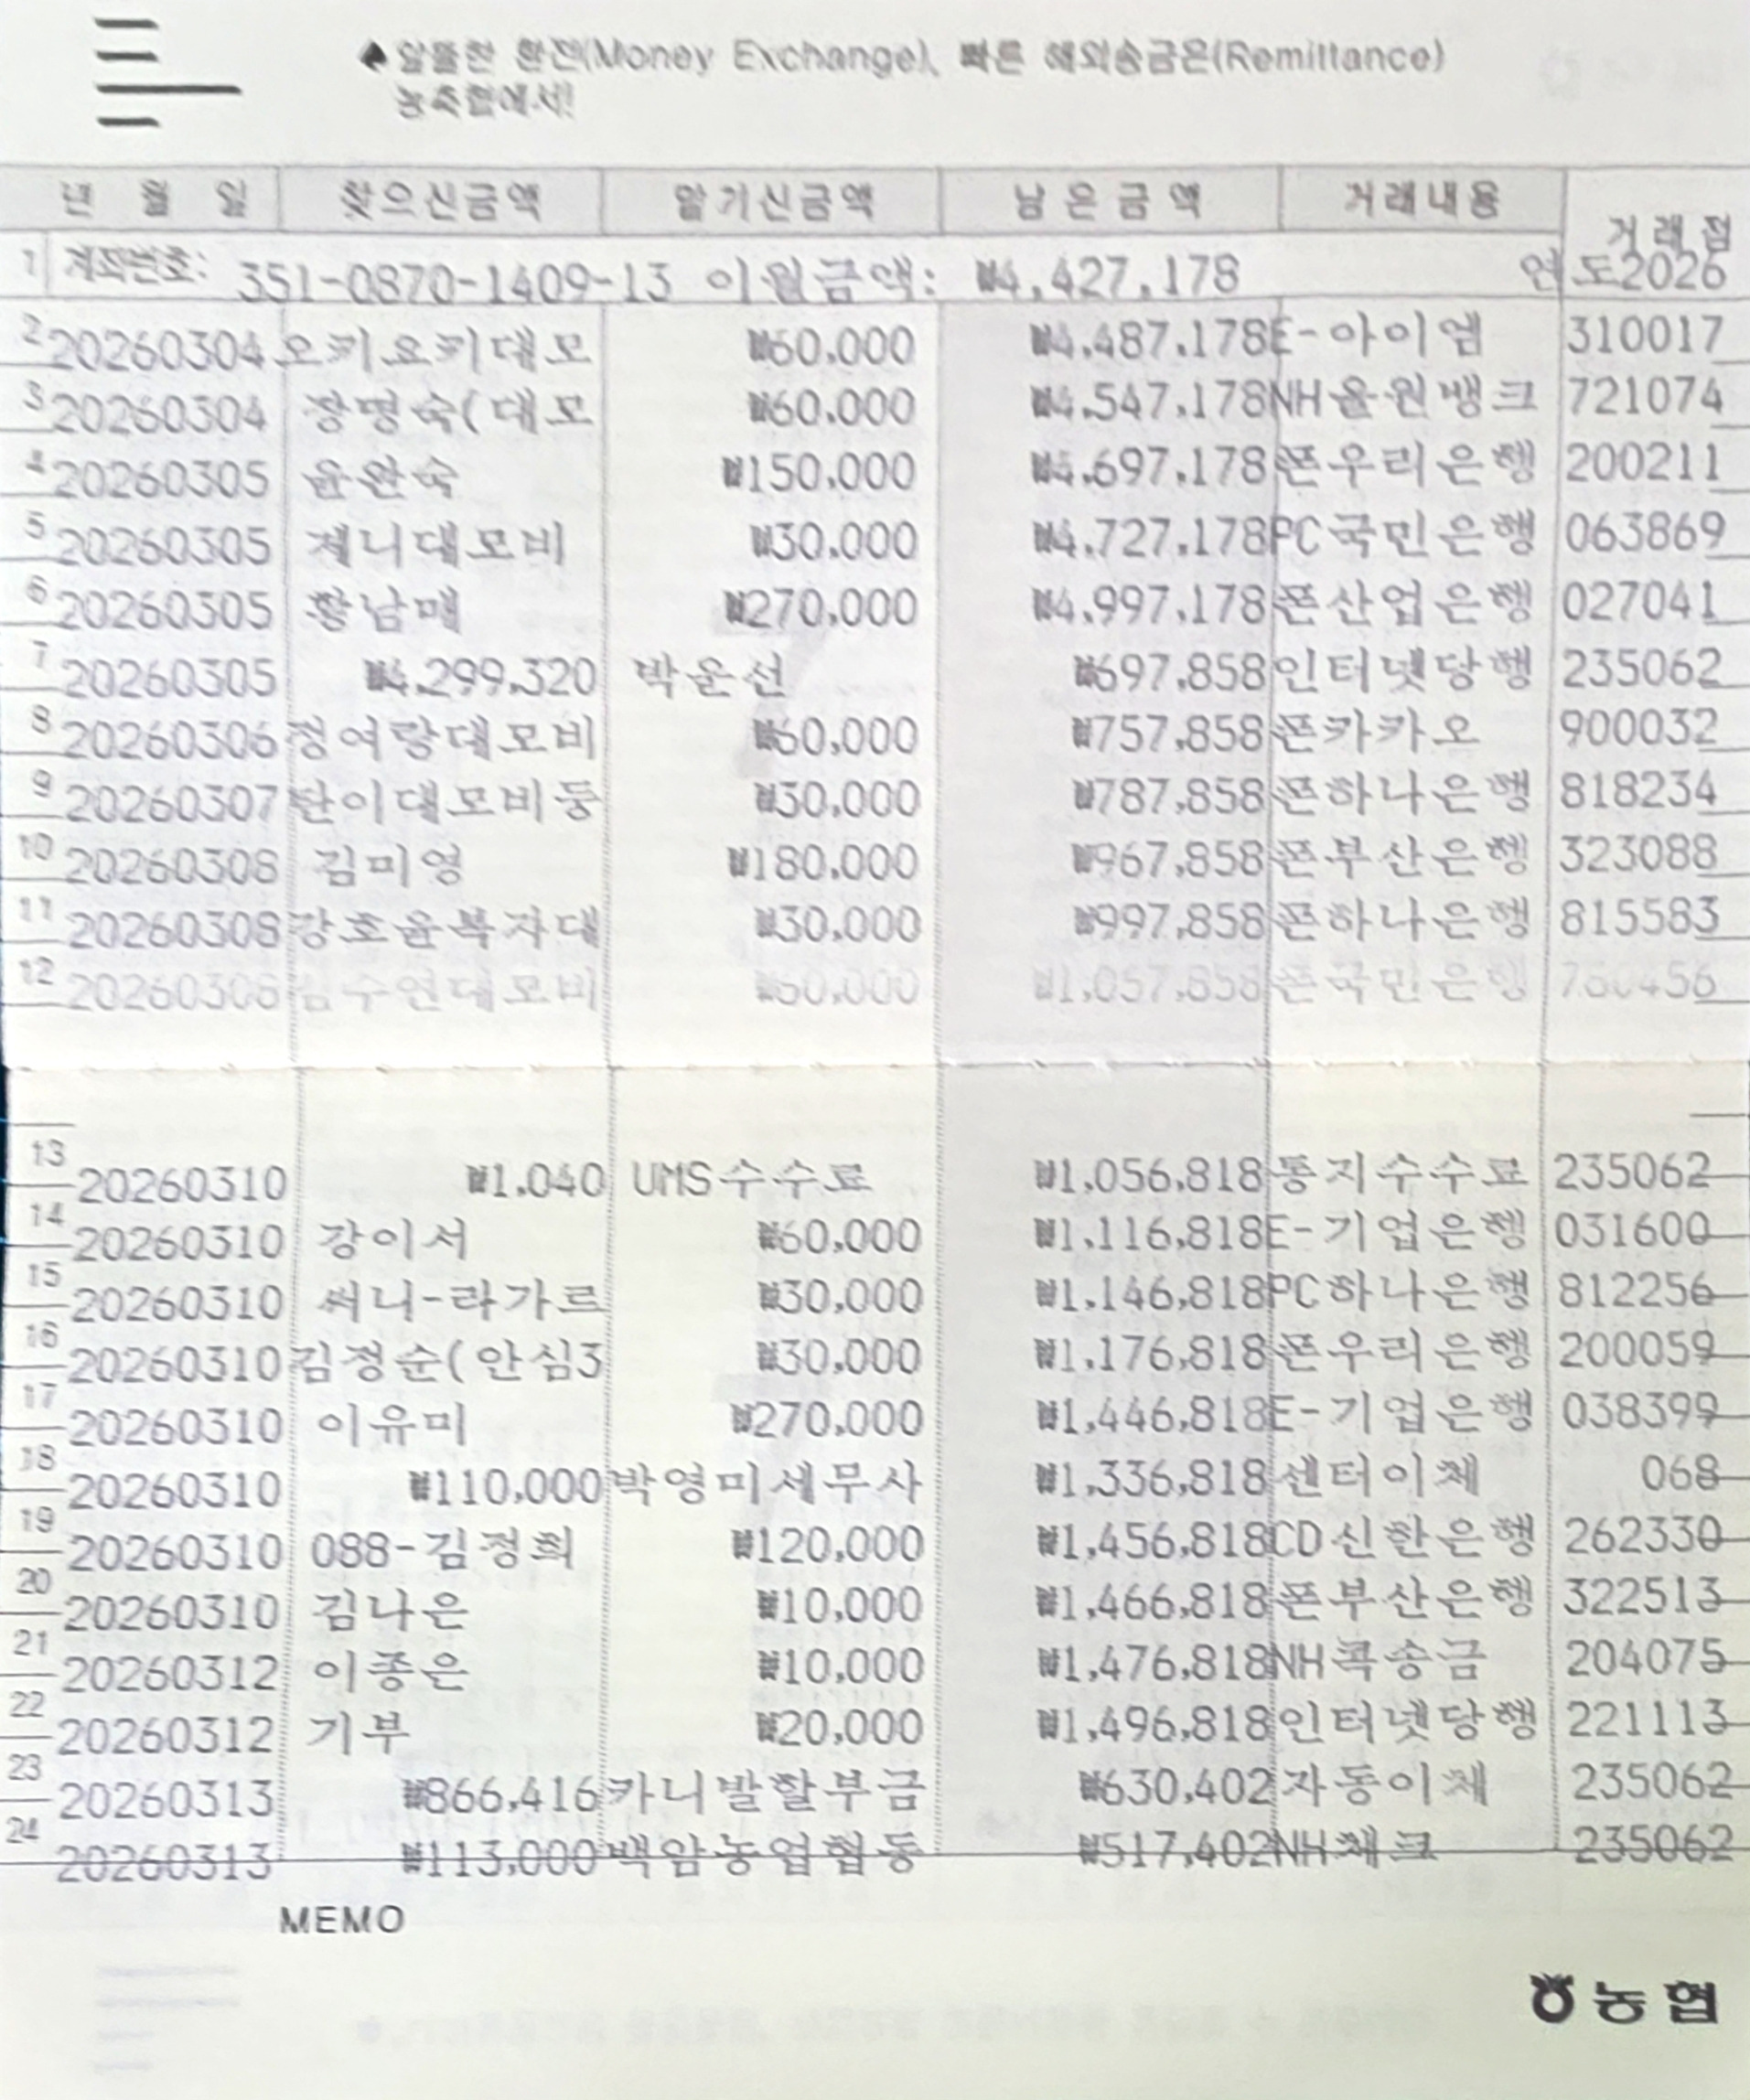 ♠ 알뜰한 환전(Money Exchange), 빠른 해외송금은(Remittance)
농축협에서!
년 월 일 찾으신금액 맡기신금액 남은금액 거래내용 거래점
1 계좌번호: 351-0870-1409-13 이월금액: ₩4,427,178 연도2026
2 20260304 오키요키대모 ₩60,000 ₩4,487,178 E-아이엠 310017
3 20260304 장명숙(대모 ₩60,000 ₩4,547,178 NH올원뱅크 721074
4 20260305 윤완숙 ₩150,000 ₩4,697,178 폰우리은행 200211
5 20260305 제니대모비 ₩30,000 ₩4,727,178 PC국민은행 063869
6 20260305 황남매 ₩270,000 ₩4,997,178 폰산업은행 027041
7 20260305 ₩4,299,320 박운선 ₩697,858 인터넷당행 235062
8 20260306 정여랑대모비 ₩60,000 ₩757,858 폰카카오 900032
9 20260307 탄이대모비둥 ₩30,000 ₩787,858 폰하나은행 818234
10 20260308 김미영 ₩180,000 ₩967,858 폰부산은행 323088
11 20260308 강호윤복자대 ₩30,000 ₩997,858 폰하나은행 815583
12 20260308 ₩60,000 ₩1,057,858 폰국민은행
13 20260310 ₩1,040 UMS수수료 ₩1,056,818 통지수수료 235062
14 20260310 강이서 ₩60,000 ₩1,116,818 E-기업은행 031600
15 20260310 써니-라가르 ₩30,000 ₩1,146,818 PC하나은행 812256
16 20260310 김정순(안심3 ₩30,000 ₩1,176,818 폰우리은행 200059
17 20260310 이유미 ₩270,000 ₩1,446,818 E-기업은행 038399
18 20260310 ₩110,000 박영미세무사 ₩1,336,818 센터이체 068
19 20260310 088-김정희 ₩120,000 ₩1,456,818 CD신한은행 262330
20 20260310 김나은 ₩10,000 ₩1,466,818 폰부산은행 322513
21 20260312 이종은 ₩10,000 ₩1,476,818 NH콕송금 204075
22 20260312 기부 ₩20,000 ₩1,496,818 인터넷당행 221113
23 20260313 ₩866,416 카니발할부금 ₩630,402 자동이체 235062
24 20260313 ₩113,000 백암농업협동 ₩517,402 NH체크 235062
MEMO
농협